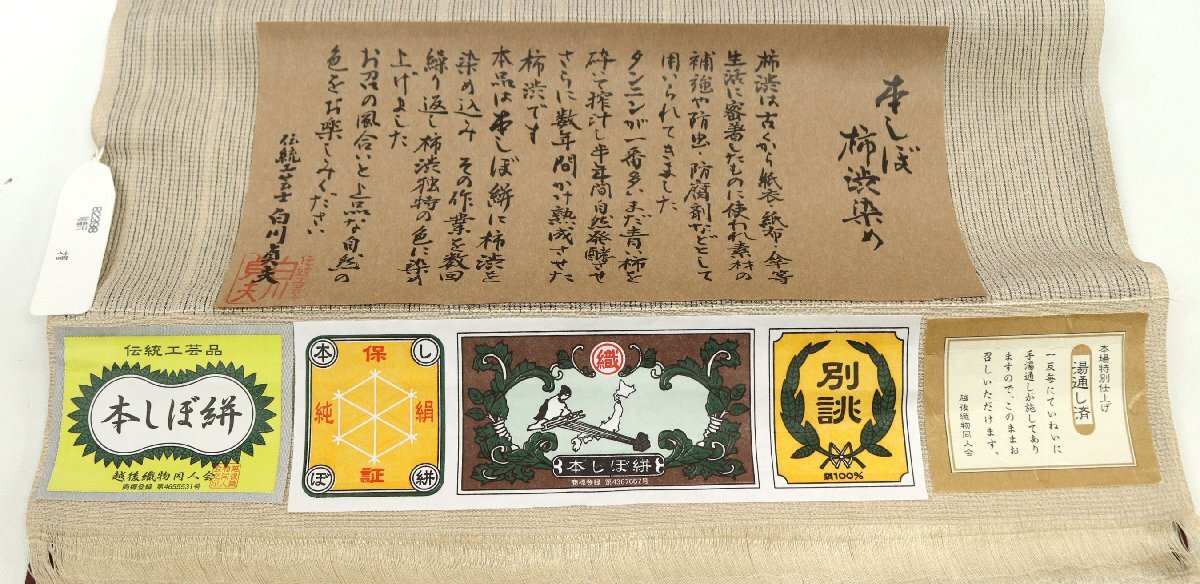 本しぼ
柿渋染め
柿渋は古くから紙衣、紙布、傘等
生活に密着したものに使われ素材の
補強や防虫、防腐剤などとして
用いられてきました
タンニンが一番多い、まだ青い柿を
砕いて搾汁し半年間自然発酵させ
さらに数年間かけ熟成させた
柿渋です
本品は本しぼ絣に柿渋を
染め込み その作業を数回
繰り返し柿渋独特の色に染め
上げました
お召の風合いと上品な自然の
色をお楽しみください
伝統工芸士 白川貞夫
白川
貞夫
B2398
伝統工芸品
本しぼ絣
越後織物同人会
商標登録 第4655531号
本
保
し
純
絹
ぽ
証
絣
織
本しぼ絣
商標登録 第4367667号
別誂
絹100%
本場特別仕上げ
湯通し済
一反毎にていねいに
手湯通しが施してあり
ますので、このままお
召しいただけます。
越後織物同人会